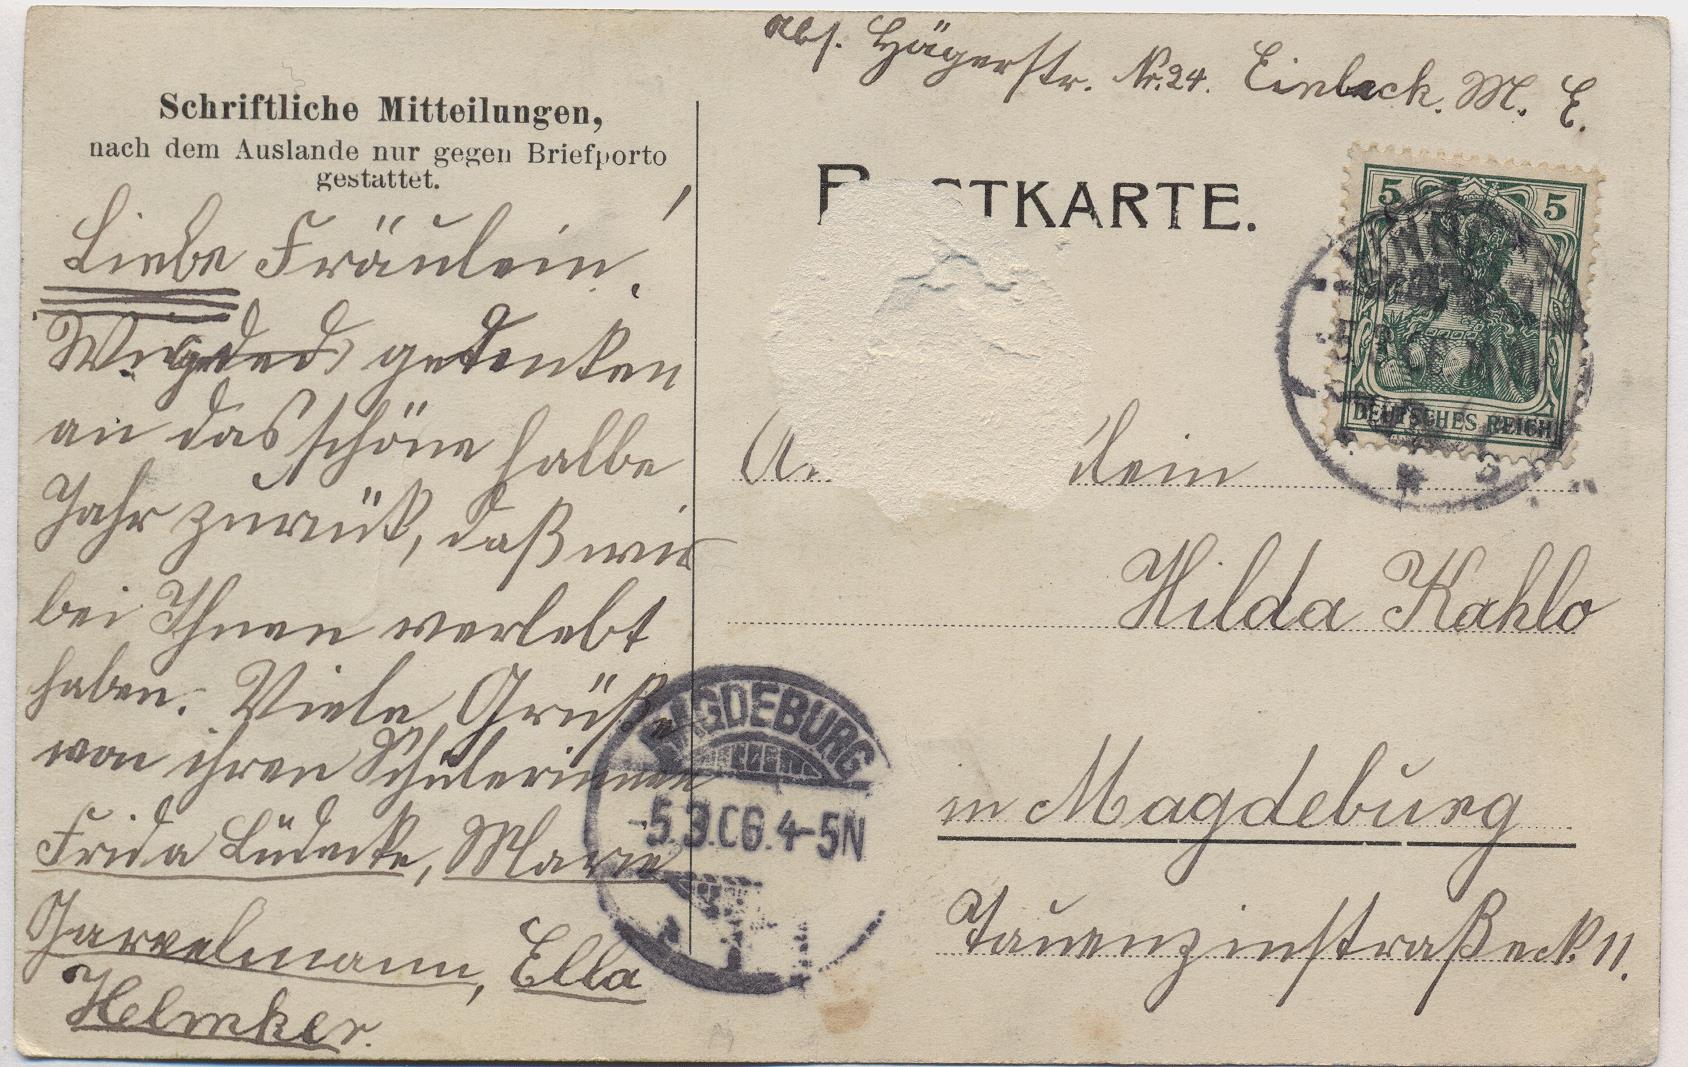 Abs. Hägerstr. Nr. 24. Einbeck. M. E.
Schriftliche Mitteilungen,
nach dem Auslande nur gegen Briefporto
gestattet.
Liebe Fräulein!
gedenken
an das schöne halbe
Jahr zurück, daß wir
bei Ihnen verlebt
haben. Viele Grüße
von ihren Schülerinnen
Frida Lüdecke, Marie
Garvelmann, Ella
Helmker.
POSTKARTE.
5 5
DEUTSCHES REICH
lein
Hilda Kahlo
in Magdeburg
Tauenzinstraße 11.
MAGDEBURG
-5.9.06. 4-5N